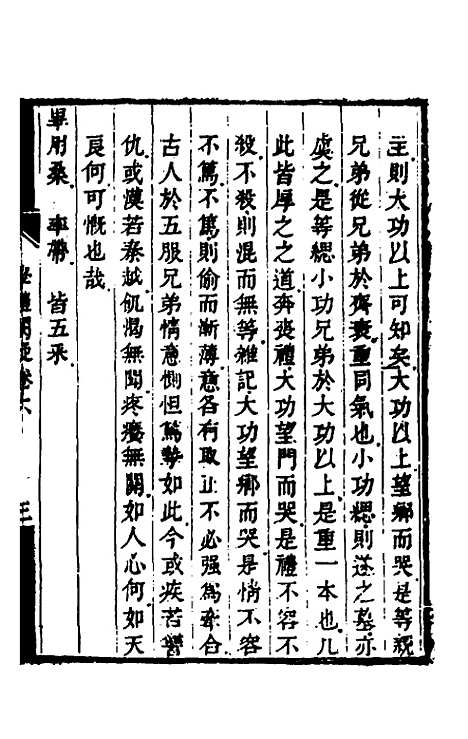 主則大功以上可知矣大功以上望鄉而哭是等親
兄弟從兄弟於齊衰重同氣也小功緦則遂之墓亦
虞之是等緦小功兄弟於大功以上是重一本也凡
此皆厚之之道奔喪禮大功望門而哭是禮不容不
殺不殺則混而無等雜記大功望鄉而哭是情不容
不篤不篤則偷而漸薄意各有取正不必强爲牽合
古人於五服兄弟情意惻怛篤摯如此今或疾若讐
仇或漠若秦越飢渴無聞疼癢無關如人心何如天
良何可慨也哉
畢用桑 率帶 皆五采
學禮闕疑卷六
三